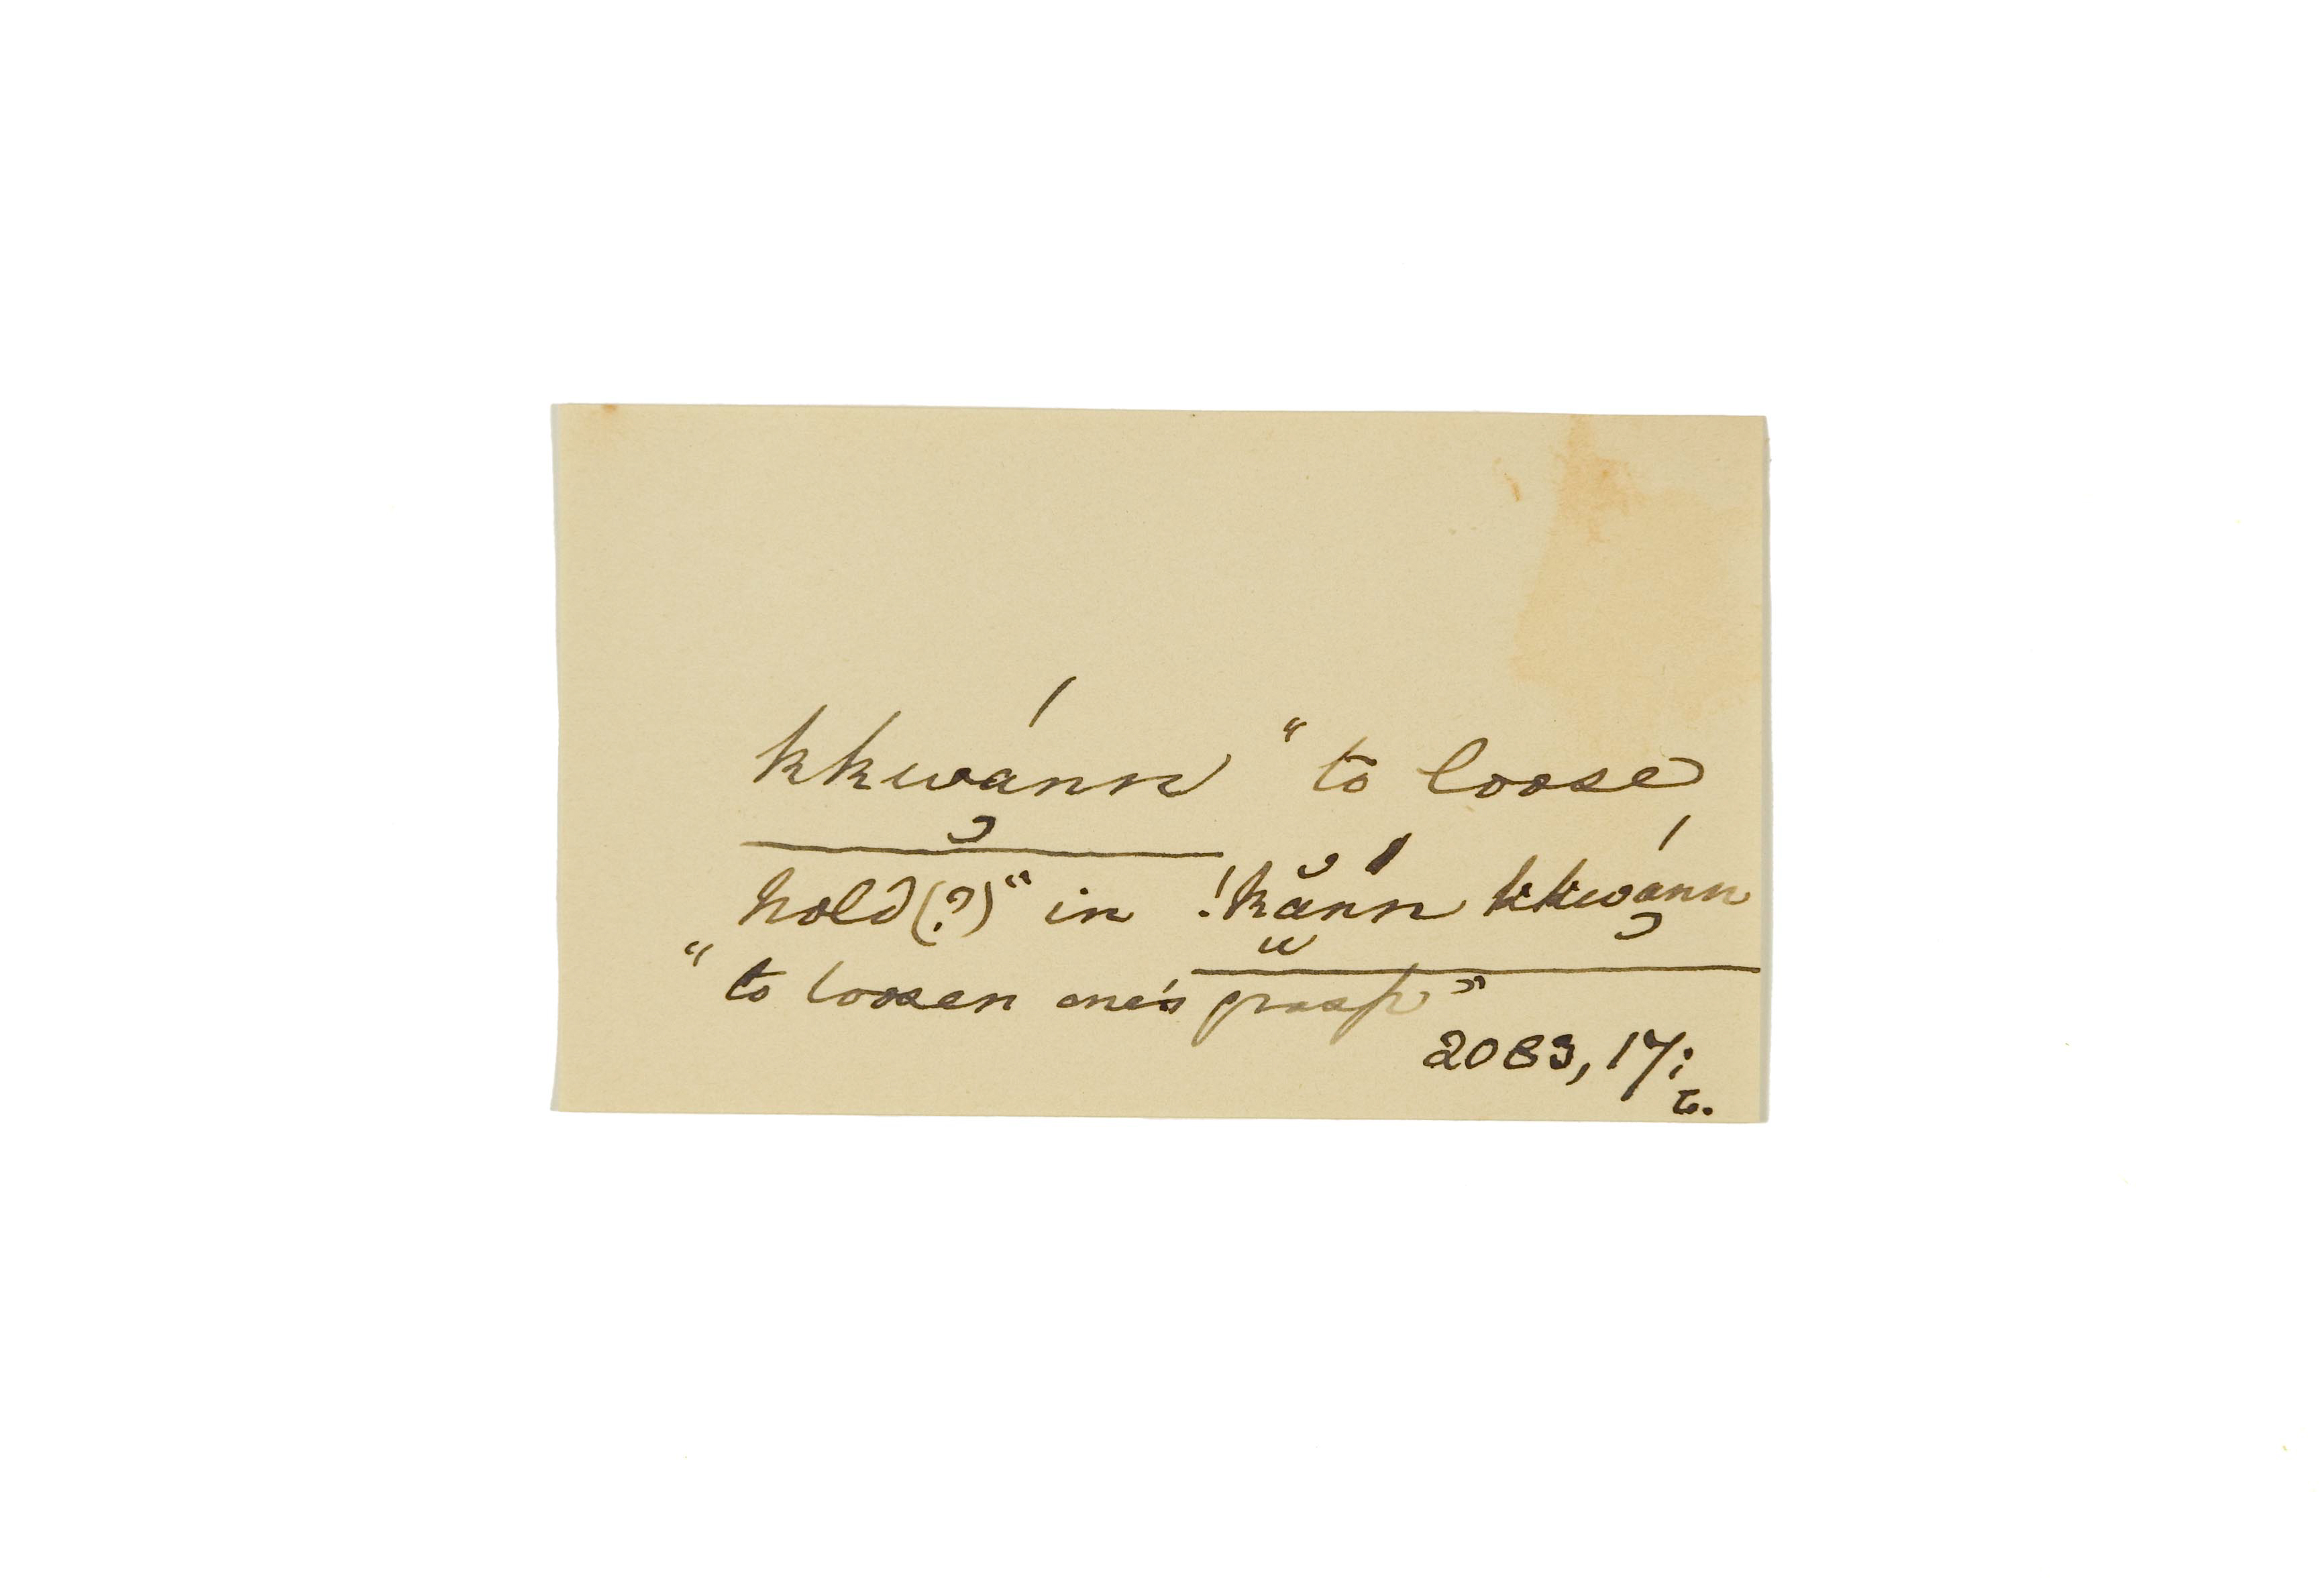 kkwá̦nn "to loose
hold(?)" in !kắ̤nń kkwá̦nn
"to loosen one's grasp"
2083, 17;